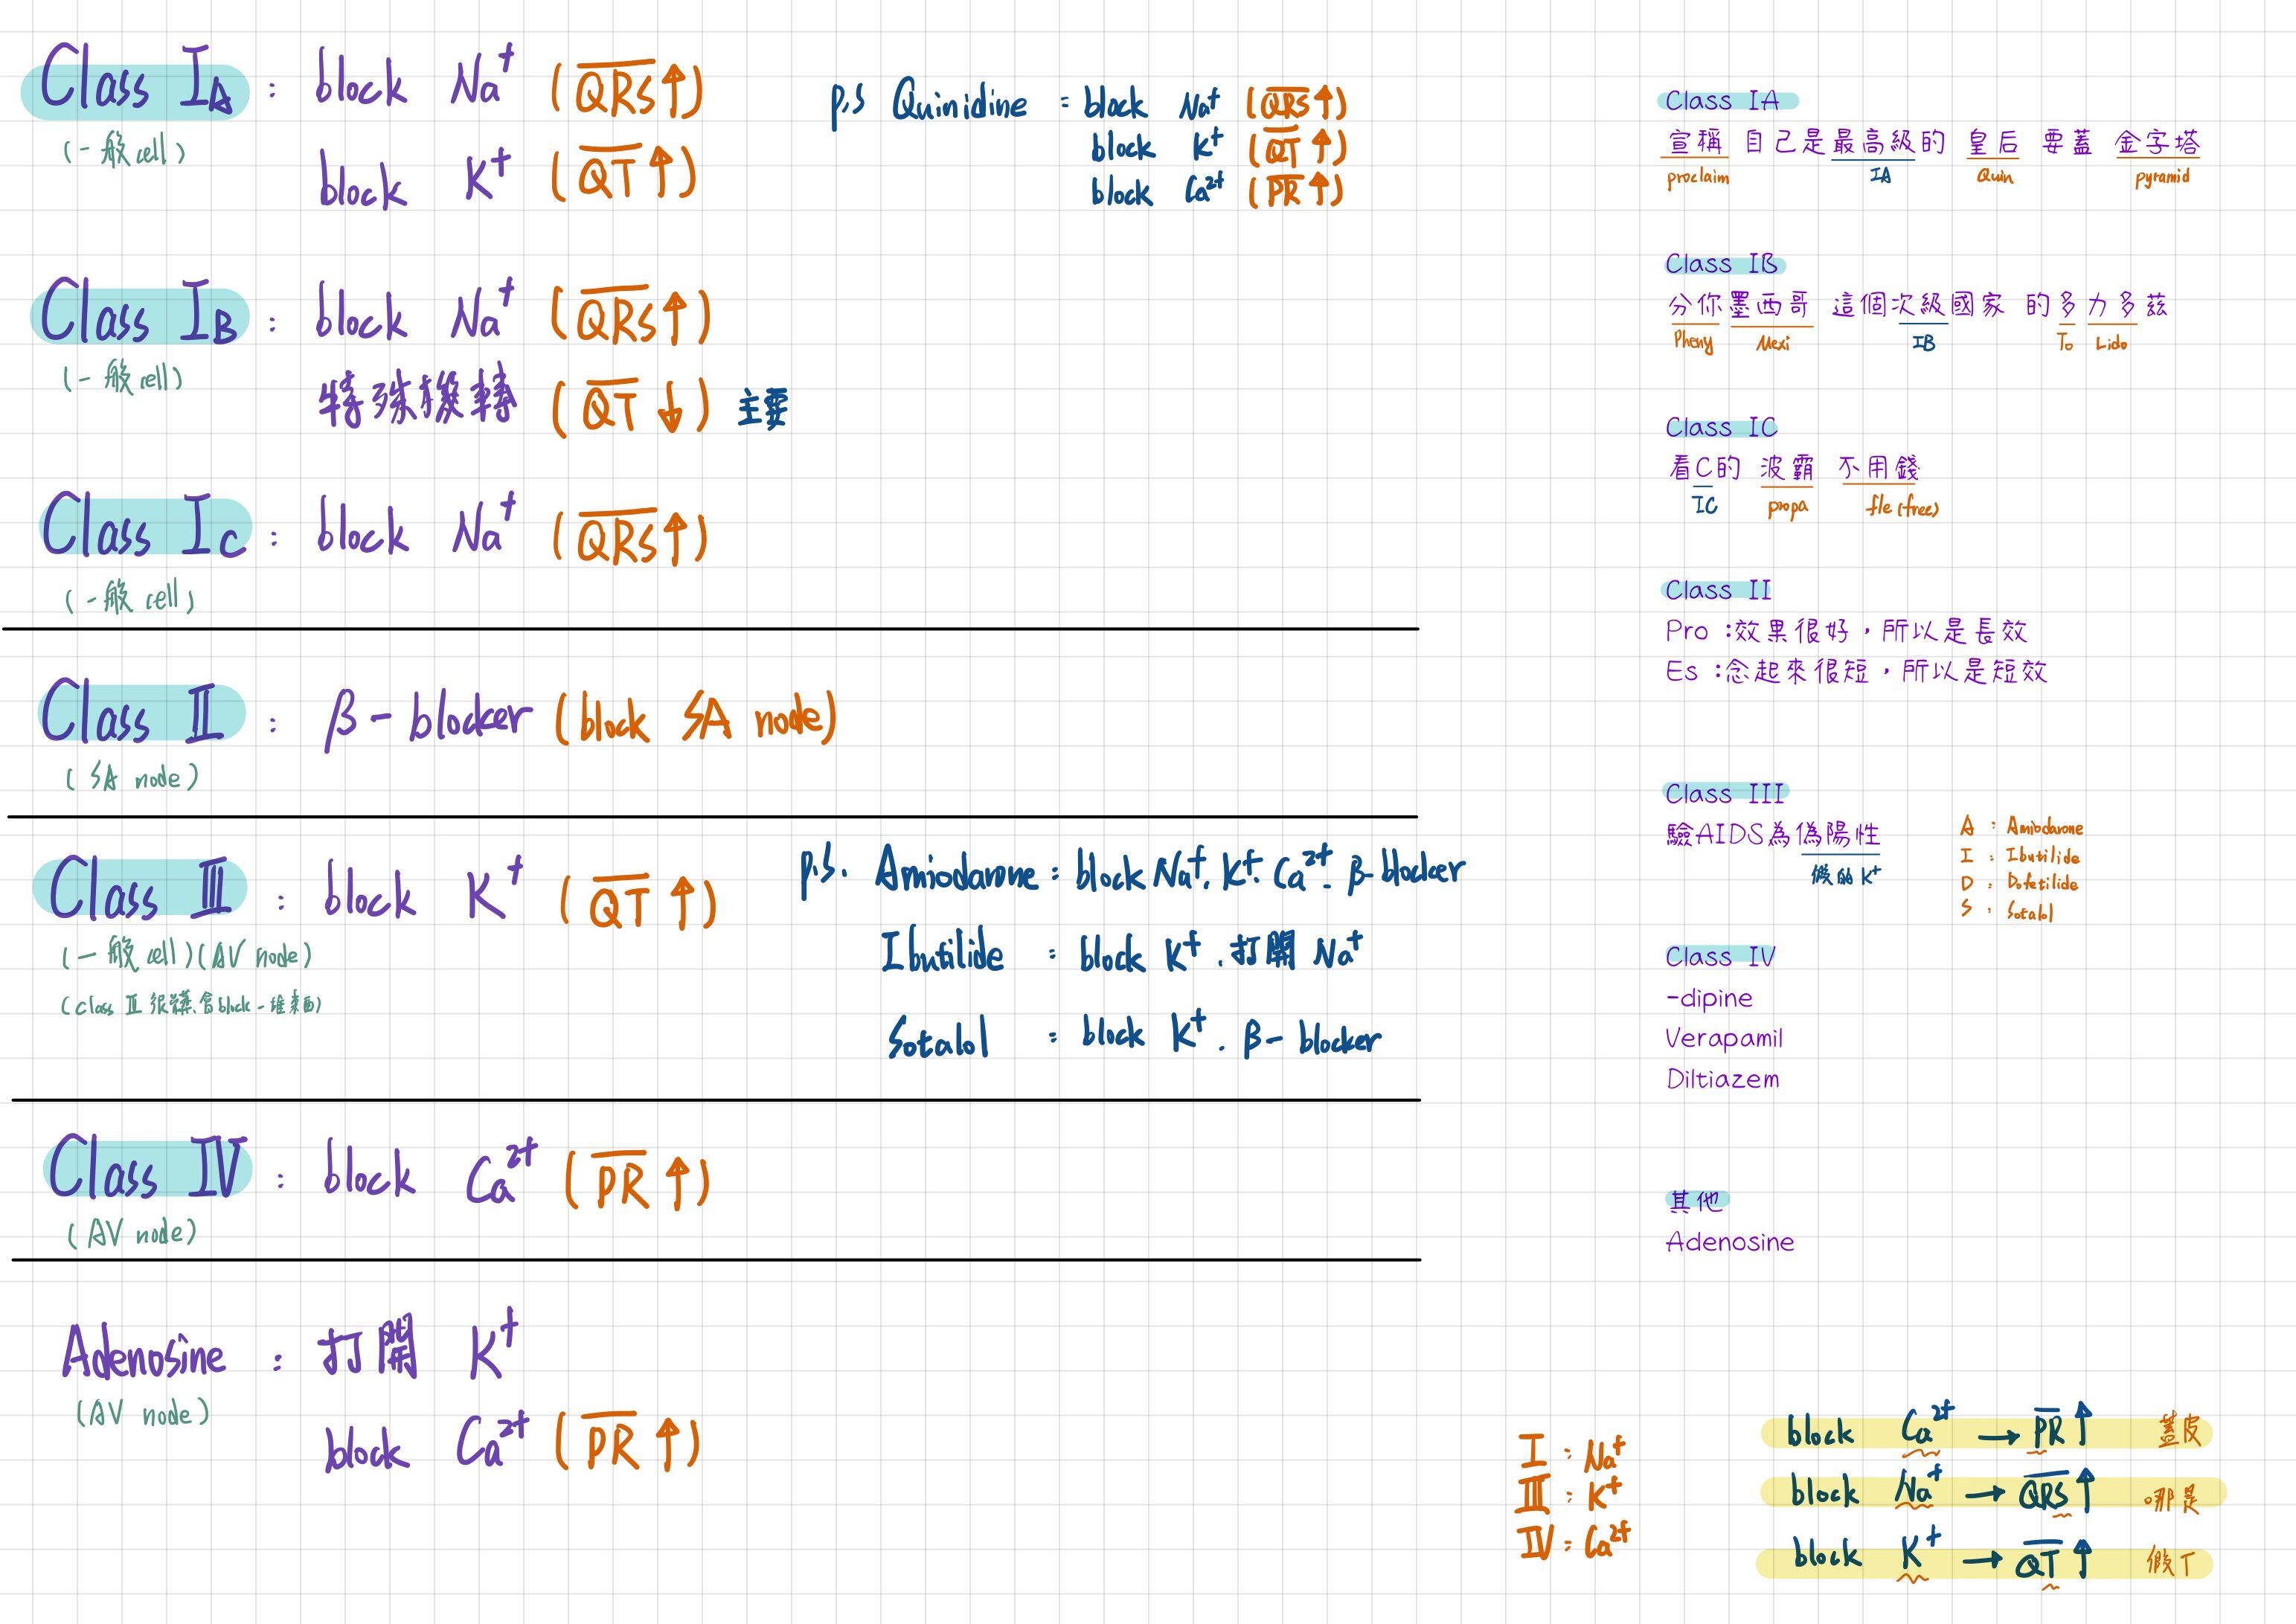 Class IA : block Na⁺ (QRS↑)
(一般cell)
block K⁺ (QT↑)
p.s Quinidine : block Na⁺ (QRS↑)
block K⁺ (QT↑)
block Ca²⁺ (PR↑)
Class IB : block Na⁺ (QRS↑)
(一般cell)
特殊機轉 (QT↓) 主要
Class IC : block Na⁺ (QRS↑)
(一般cell)
Class II : β-blocker (block SA node)
(SA node)
Class III : block K⁺ (QT↑)
(一般cell)(AV node)
(class III 很,會block一堆東西)
p.s. Amiodarone : block Na⁺. K⁺. Ca²⁺. β-blocker
Ibutilide : block K⁺. 打開 Na⁺
Sotalol : block K⁺. β-blocker
Class IV : block Ca²⁺ (PR↑)
(AV node)
Adenosine : 打開 K⁺
(AV node)
block Ca²⁺ (PR↑)
Class IA
宣稱 自己是最高級的 皇后 要蓋 金字塔
proclaim IA Quin pyramid
Class IB
分你墨西哥 這個次級國家 的多力多茲
Pheny Mexi IB To Lido
Class IC
看C的 波霸 不用錢
IC propa fle (free)
Class II
Pro :效果很好,所以是長效
Es :念起來很短,所以是短效
Class III
驗AIDS為偽陽性
假的K⁺
A : Amiodarone
I : Ibutilide
D : Dofetilide
S : Sotalol
Class IV
-dipine
Verapamil
Diltiazem
其他
Adenosine
I : Na⁺
III : K⁺
IV : Ca²⁺
block Ca²⁺ → PR↑ 蓋皮
block Na⁺ → QRS↑ 哪是
block K⁺ → QT↑ 假T